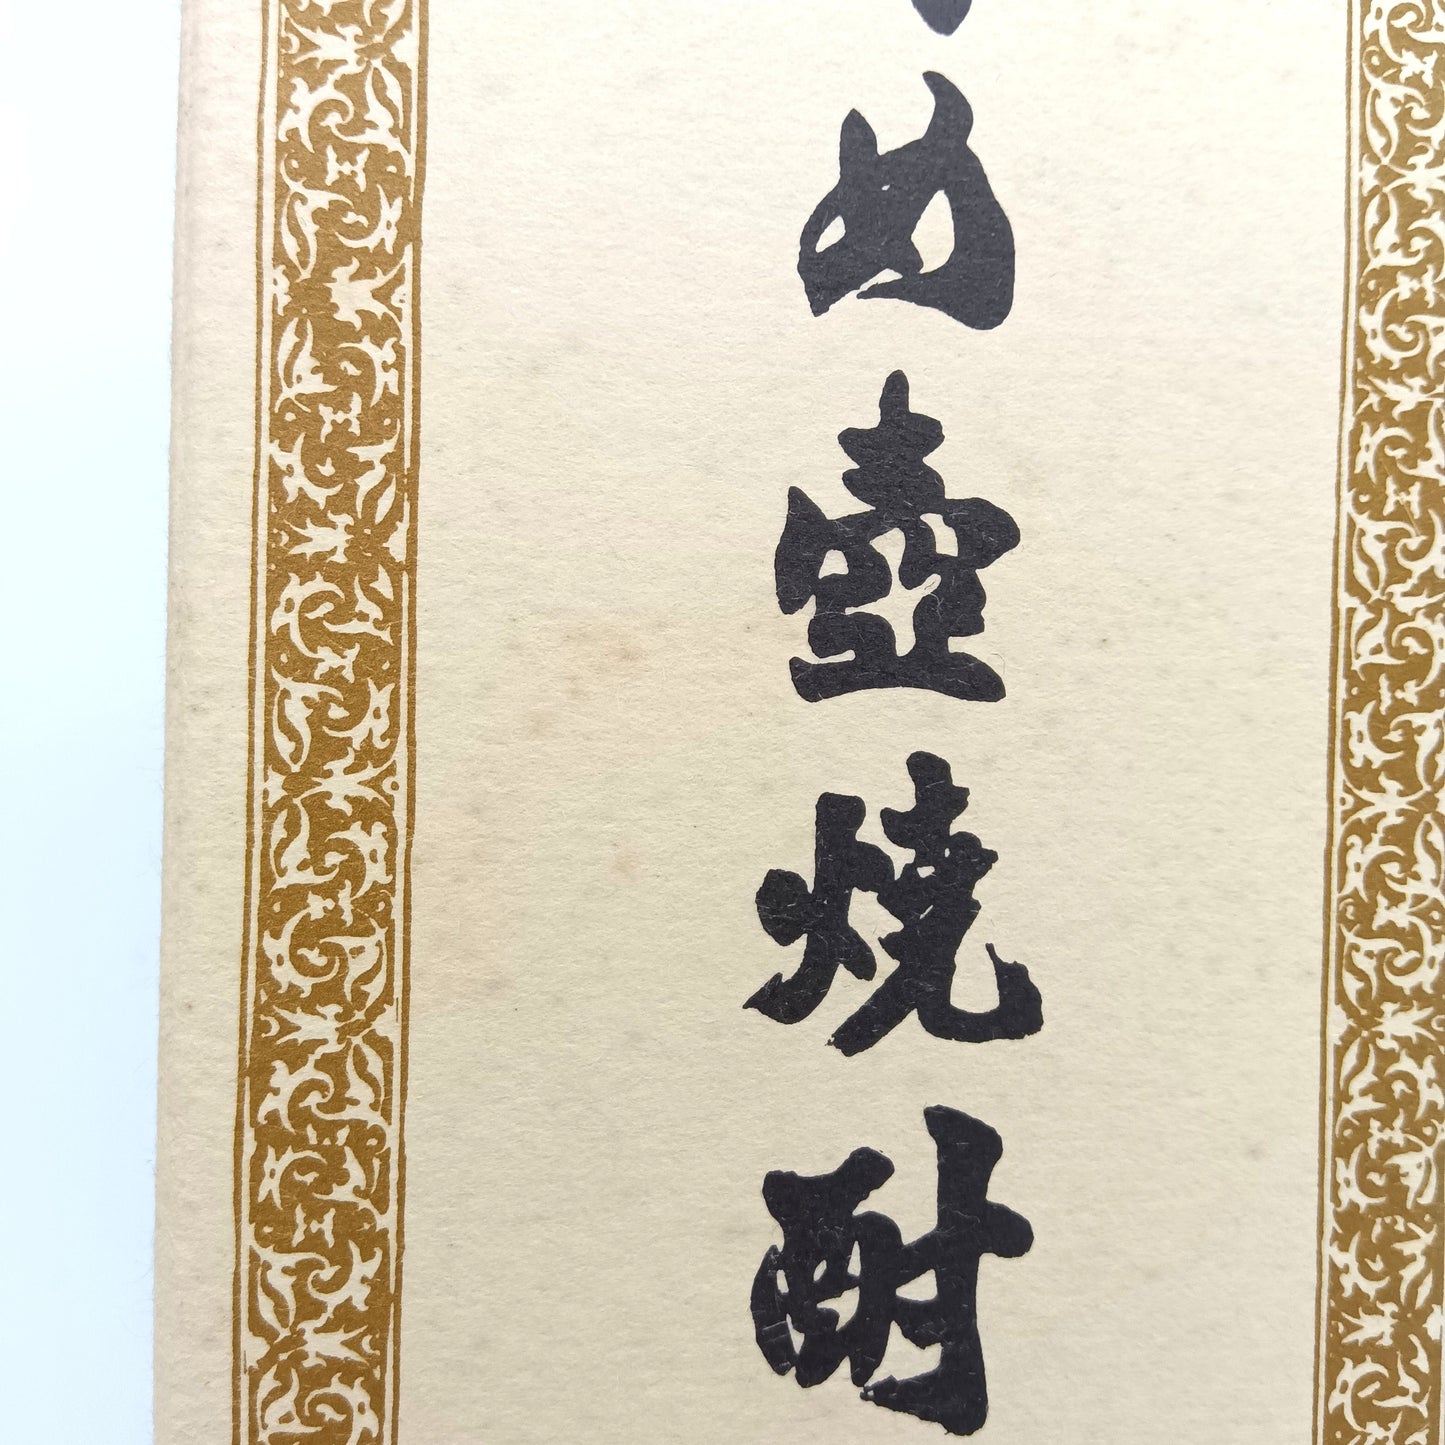 め壺焼酎